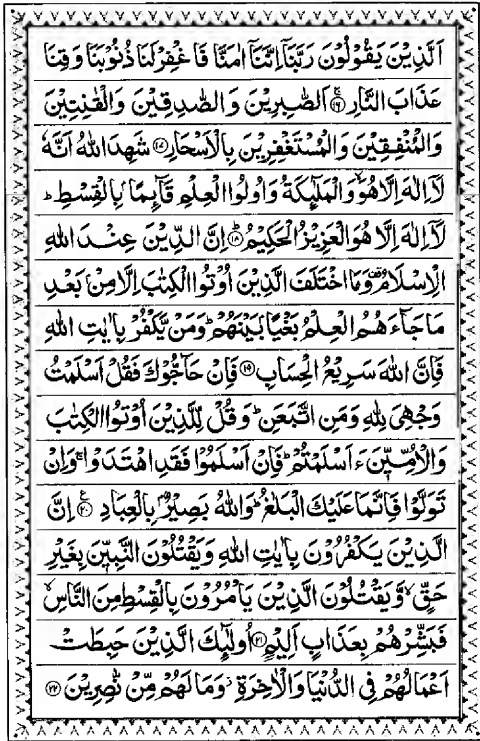 اَلَّذِيْنَ يَقُوْلُوْنَ رَبَّنَاۤ اِنَّنَاۤ اٰمَنَّا فَاغْفِرْ لَنَا ذُنُوْبَنَا وَقِنَا
عَذَابَ النَّارِ ۚ﴿۱۶﴾ اَلصّٰبِرِيْنَ وَالصّٰدِقِيْنَ وَالْقٰنِتِيْنَ
وَالْمُنْفِقِيْنَ وَالْمُسْتَغْفِرِيْنَ بِالْاَسْحَارِ ﴿۱۷﴾ شَهِدَ اللّٰهُ اَنَّهٗ
لَاۤ اِلٰهَ اِلَّا هُوَ ۙ وَالْمَلٰٓئِكَةُ وَاُولُوا الْعِلْمِ قَآئِمًۢا بِالْقِسْطِ ؕ
لَاۤ اِلٰهَ اِلَّا هُوَ الْعَزِيْزُ الْحَكِيْمُ ؕ﴿۱۸﴾ اِنَّ الدِّيْنَ عِنْدَ اللّٰهِ
الْاِسْلَامُ ۟ وَمَا اخْتَلَفَ الَّذِيْنَ اُوْتُوا الْكِتٰبَ اِلَّا مِنْۢ بَعْدِ
مَا جَآءَهُمُ الْعِلْمُ بَغْيًۢا بَيْنَهُمْ ؕ وَمَنْ يَّكْفُرْ بِاٰيٰتِ اللّٰهِ
فَاِنَّ اللّٰهَ سَرِيْعُ الْحِسَابِ ﴿۱۹﴾ فَاِنْ حَآجُّوْكَ فَقُلْ اَسْلَمْتُ
وَجْهِيَ لِلّٰهِ وَمَنِ اتَّبَعَنِ ؕ وَقُلْ لِّلَّذِيْنَ اُوْتُوا الْكِتٰبَ
وَالْاُمِّيّٖنَ ءَاَسْلَمْتُمْ ؕ فَاِنْ اَسْلَمُوْا فَقَدِ اهْتَدَوْا ۚ وَاِنْ
تَوَلَّوْا فَاِنَّمَا عَلَيْكَ الْبَلٰغُ ؕ وَاللّٰهُ بَصِيْرٌۢ بِالْعِبَادِ ﴿۲۰﴾ اِنَّ
الَّذِيْنَ يَكْفُرُوْنَ بِاٰيٰتِ اللّٰهِ وَيَقْتُلُوْنَ النَّبِيّٖنَ بِغَيْرِ
حَقٍّ ۙ وَّيَقْتُلُوْنَ الَّذِيْنَ يَاْمُرُوْنَ بِالْقِسْطِ مِنَ النَّاسِ ۙ
فَبَشِّرْهُمْ بِعَذَابٍ اَلِيْمٍ ﴿۲۱﴾ اُولٰٓئِكَ الَّذِيْنَ حَبِطَتْ
اَعْمَالُهُمْ فِي الدُّنْيَا وَالْاٰخِرَةِ ۫ وَمَا لَهُمْ مِّنْ نّٰصِرِيْنَ ﴿۲۲﴾